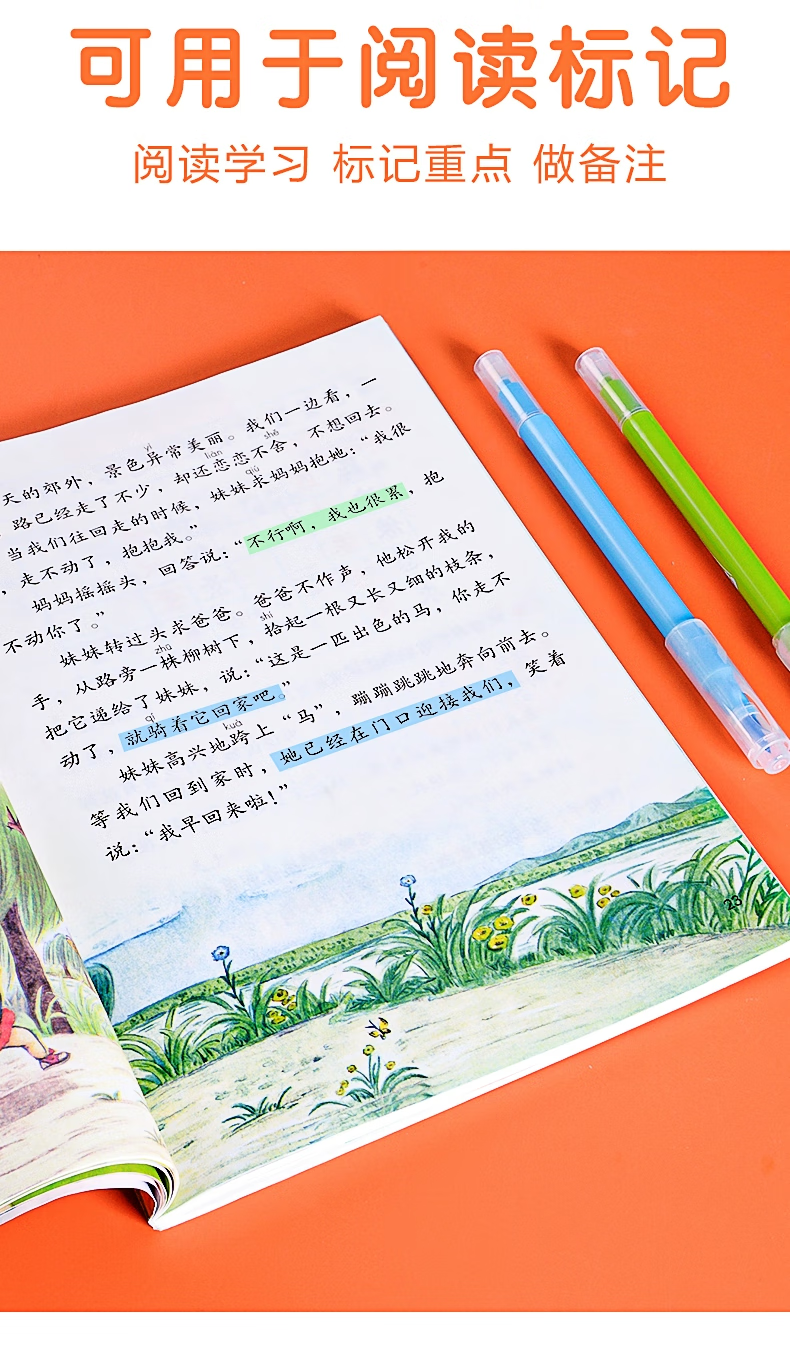 可用于阅读标记
阅读学习 标记重点 做备注
天的郊外，景色异常美丽。我们一边看，一
路已经走了不少，却还恋恋不舍，不想回去。
当我们往回走的时候，妹妹求妈妈抱她：“我很
，走不动了，抱抱我。”
妈妈摇摇头，回答说：“不行啊，我也很累，抱
不动你了。”
妹妹转过头求爸爸。爸爸不作声，他松开我的
手，从路旁一株柳树下，拾起一根又长又细的枝条，
把它递给了妹妹，说：“这是一匹出色的马，你走不
动了，就骑着它回家吧。”
妹妹高兴地跨上“马”，蹦蹦跳跳地奔向前去。
等我们回到家时，她已经在门口迎接我们，笑着
说：“我早回来啦！”
yì
liàn
shě
qiú
shí
zhū
qí
kuà
23